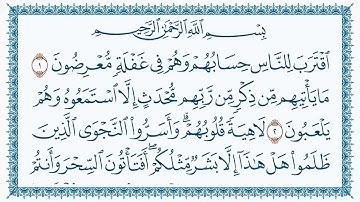 بِسْمِ ٱللَّهِ ٱلرَّحْمَٰنِ ٱلرَّحِيمِ
ٱقْتَرَبَ لِلنَّاسِ حِسَابُهُمْ وَهُمْ فِى غَفْلَةٍ مُّعْرِضُونَ ١
مَا يَأْتِيهِم مِّن ذِكْرٍ مِّن رَّبِّهِم مُّحْدَثٍ إِلَّا ٱسْتَمَعُوهُ وَهُمْ
يَلْعَبُونَ ٢ لَاهِيَةً قُلُوبُهُمْ ۗ وَأَسَرُّوا۟ ٱلنَّجْوَى ٱلَّذِينَ
ظَلَمُوا۟ هَلْ هَٰذَآ إِلَّا بَشَرٌ مِّثْلُكُمْ ۖ أَفَتَأْتُونَ ٱلسِّحْرَ وَأَنتُمْ